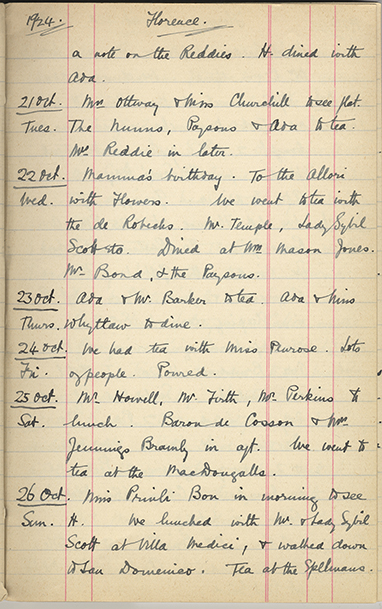 1924. Florence.
a note on the Reddies. H. dined with
Ada.
21 Oct. Mrs Ottway & Miss Churchill to see flat.
Tues. The Nunns, Paysons & Ada to tea.
Mr Reddie in later.
22 Oct. Mamma's birthday. To the Allori
Wed. with flowers. We went to tea with
the de Robecks. Mr. Temple, Lady Sybil
Scott etc. Dined at Wm Mason Jones.
Mr Bond, & the Paysons.
23 Oct. Ada & Mr. Barker to tea. Ada & Miss
Thurs. Whyttlaw to dine.
24 Oct. We had tea with Miss Penrose. Lots
Fri. of people. Poured.
25 Oct. Mr. Howell, Mr. Firth, Mr. Perkins to
Sat. lunch. Baron de Cosson & Mrs
Jennings Bramly in aft. We went to
tea at the MacDougalls.
26 Oct. Miss Bon in morning to see
Sun. H. We lunched with Mr. & Lady Sybil
Scott at Villa Medici, & walked down
to San Domenico. Tea at the Spelmans.